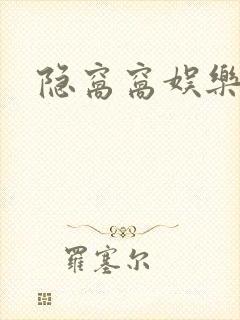 隐窝窝娱樂
羅塞尔